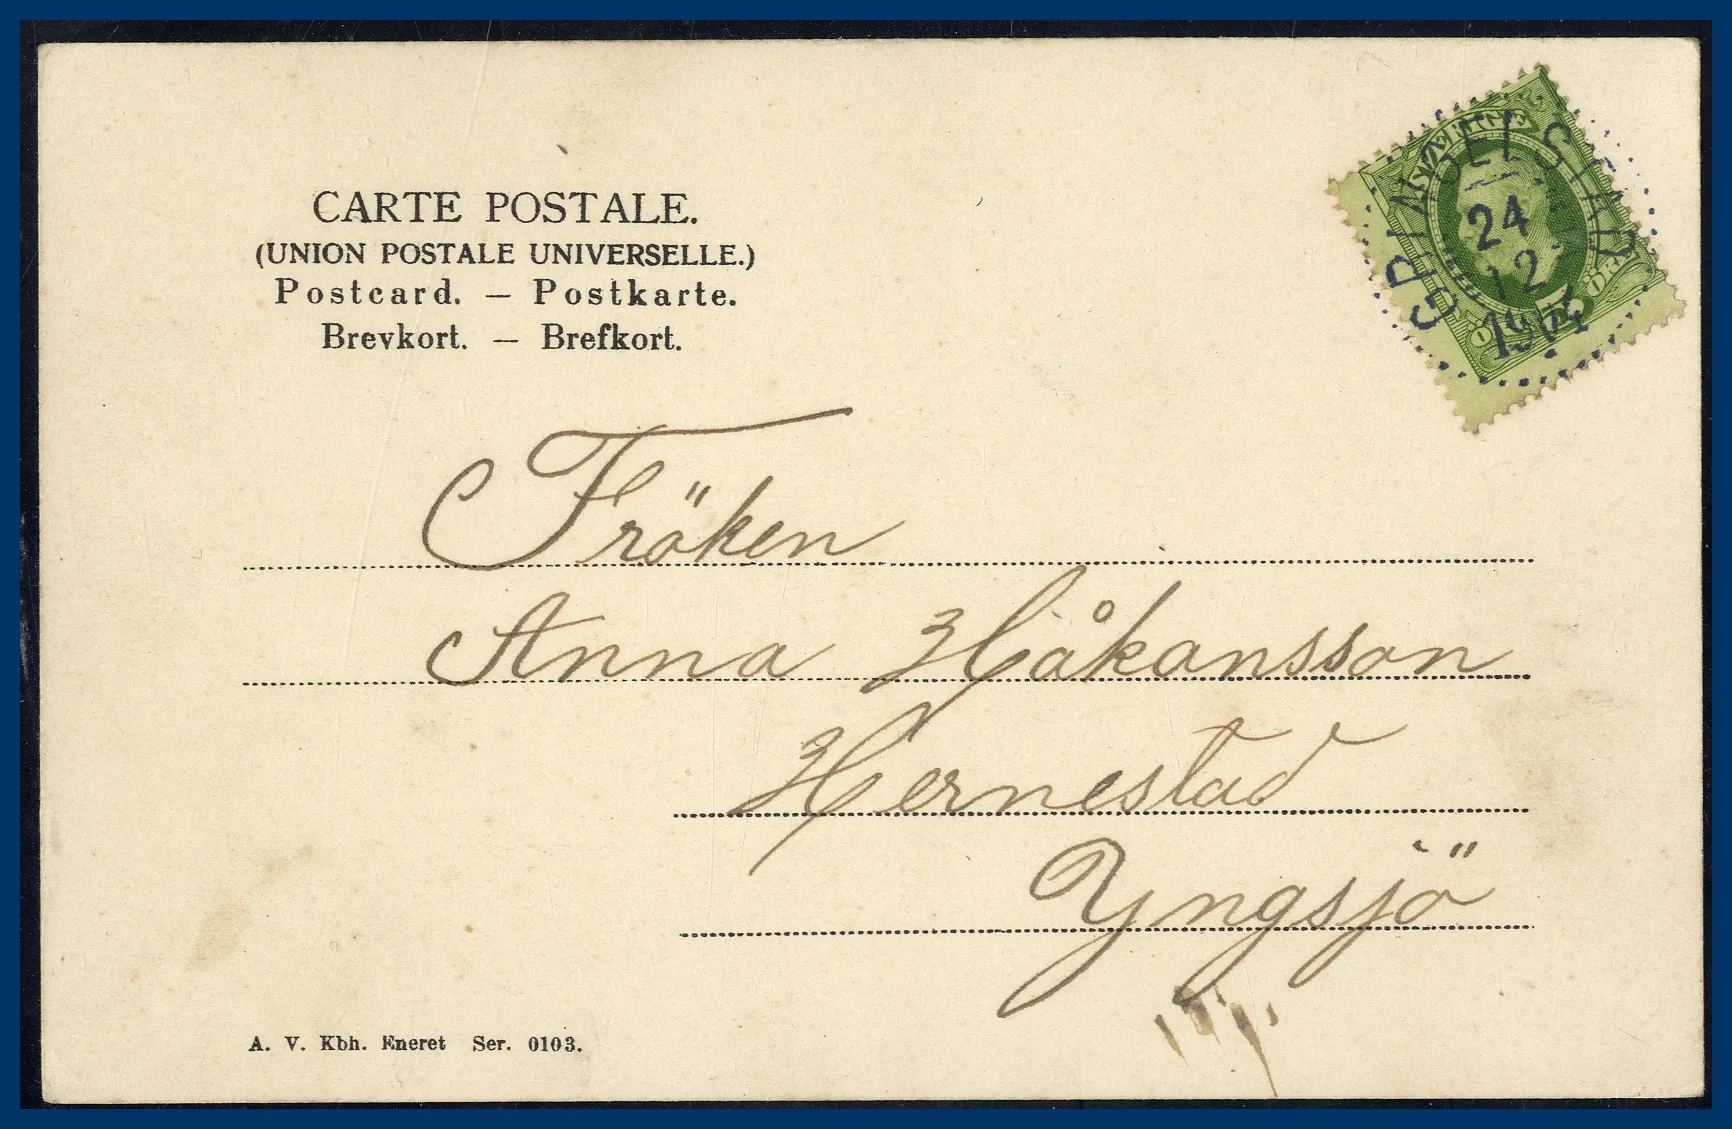 CARTE POSTALE.
(UNION POSTALE UNIVERSELLE.)
Postcard. — Postkarte.
Brevkort. — Brefkort.
GRINDELSTAD
24
12
1904
Fröken
Anna Håkansson
Hernestad
Yngsjö
A. V. Kbh. Eneret Ser. 0103.